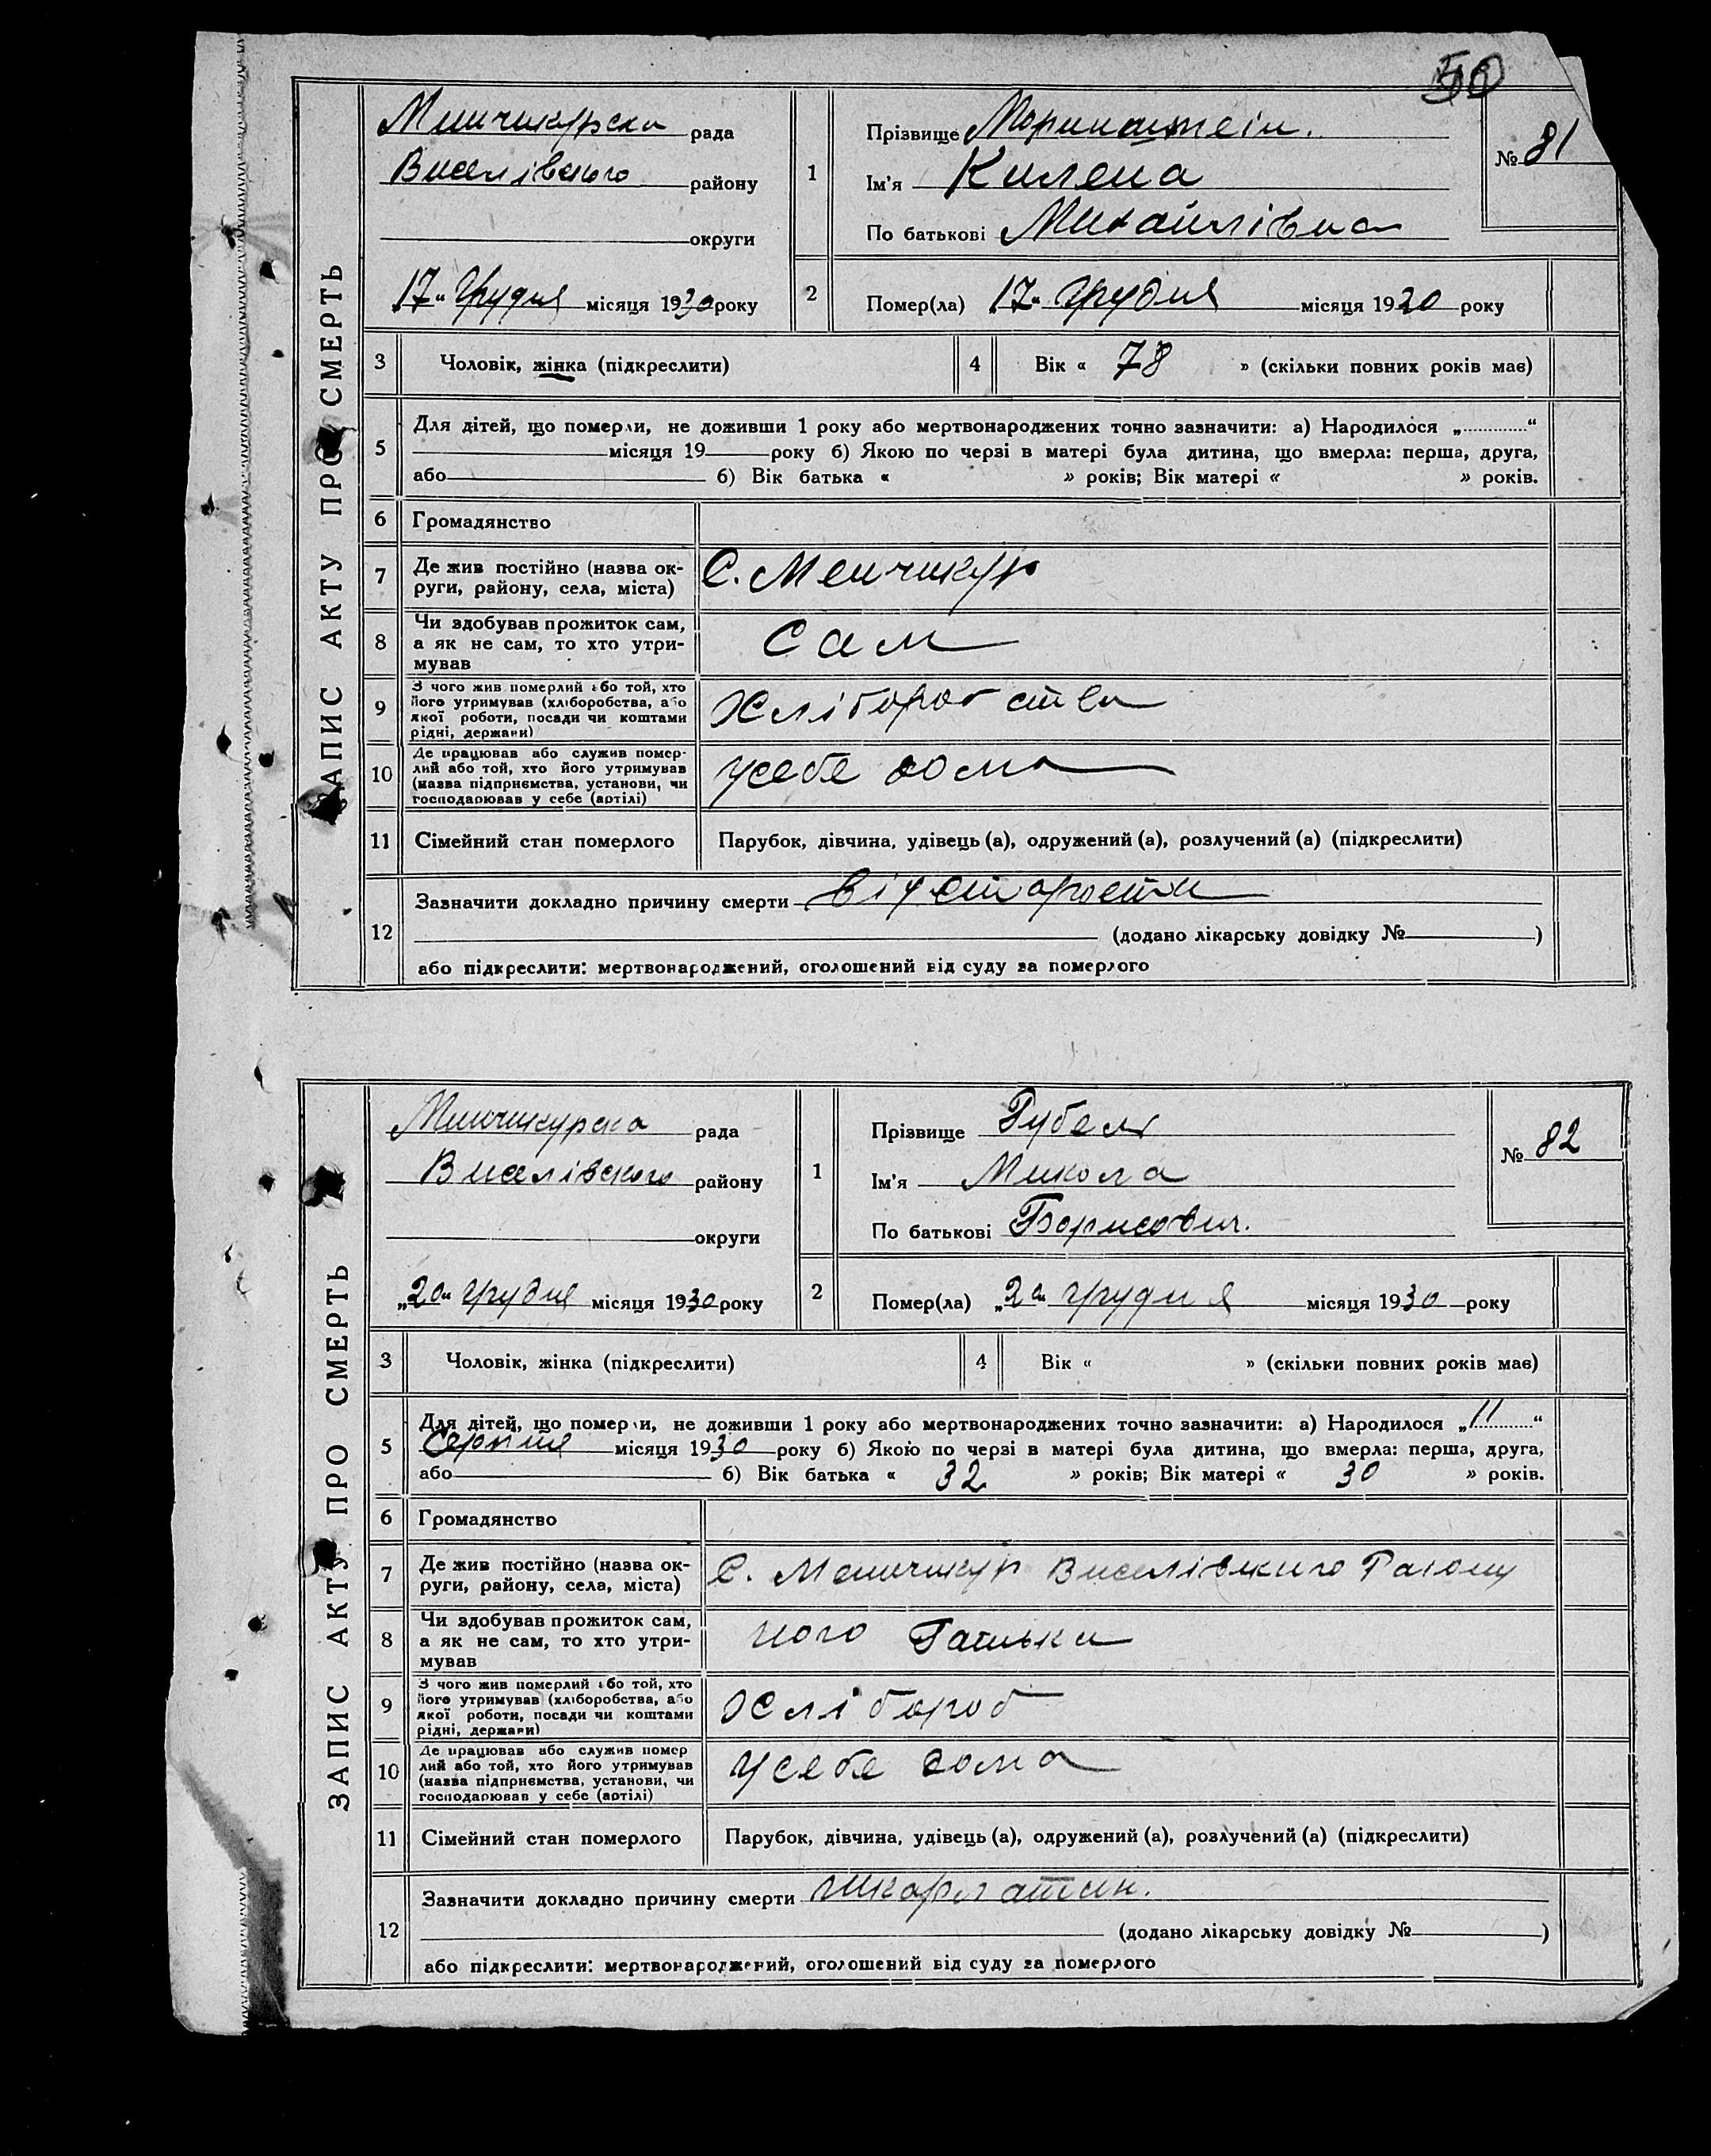 50
ЗАПИС АКТУ ПРО СМЕРТЬ
Минчикурска рада
Виселівского району
округи
17 " Грудня місяця 1930 року
1
Прізвище
Ім'я Килена
По батькові Михайлівна
№ 81
2
Помер(ла) 17 " грудня місяця 1930 року
3 Чоловік, жінка (підкреслити)
4 Вік « 78 » (скільки повних років має)
5 Для дітей, що померли, не доживши 1 року або мертвонароджених точно зазначити: а) Народилося „............“
місяця 19 року б) Якою по черзі в матері була дитина, що вмерла: перша, друга,
або б) Вік батька « » років; Вік матері « » років.
6 Громадянство
7 Де жив постійно (назва ок-
руги, району, села, міста)
С. Менчикур
8 Чи здобував прожиток сам,
а як не сам, то хто утри-
мував
Сам
9 З чого жив померлий або той, хто
його утримував (хліборобства, або
якої роботи, посади чи коштами
рідні, держави)
Хліборобства
10 Де працював або служив помер-
лий або той, хто його утримував
(назва підприємства, установи, чи
господарював у себе (артілі)
усебе дома
11 Сімейний стан померлого
Парубок, дівчина, удівець (а), одружений (а), розлучений (а) (підкреслити)
12 Зазначити докладно причину смерти від старости
(додано лікарську довідку № )
або підкреслити: мертвонароджений, оголошений від суду за померлого
ЗАПИС АКТУ ПРО СМЕРТЬ
Минчикурска рада
Виселівского району
округи
„20" грудня місяця 1930 року
1
Прізвище Рубель
Ім'я Микола
По батькові Борисович.
№ 82
2
Помер(ла) „20" грудня місяця 1930 року
3 Чоловік, жінка (підкреслити)
4 Вік « » (скільки повних років має)
5 Для дітей, що померли, не доживши 1 року або мертвонароджених точно зазначити: а) Народилося „11“
Серпня місяця 1930 року б) Якою по черзі в матері була дитина, що вмерла: перша, друга,
або б) Вік батька « 32 » років; Вік матері « 30 » років.
6 Громадянство
7 Де жив постійно (назва ок-
руги, району, села, міста)
С. Менчикур Виселівского Району
8 Чи здобував прожиток сам,
а як не сам, то хто утри-
мував
його Батьки
9 З чого жив померлий або той, хто
його утримував (хліборобства, або
якої роботи, посади чи коштами
рідні, держави)
Хлібороб
10 Де працював або служив помер
лий або той, хто його утримував
(назва підприємства, установи, чи
господарював у себе (артілі)
усебе дома
11 Сімейний стан померлого
Парубок, дівчина, удівець (а), одружений (а), розлучений (а) (підкреслити)
12 Зазначити докладно причину смерти шкарлатин.
(додано лікарську довідку № )
або підкреслити: мертвонароджений, оголошений від суду за померлого